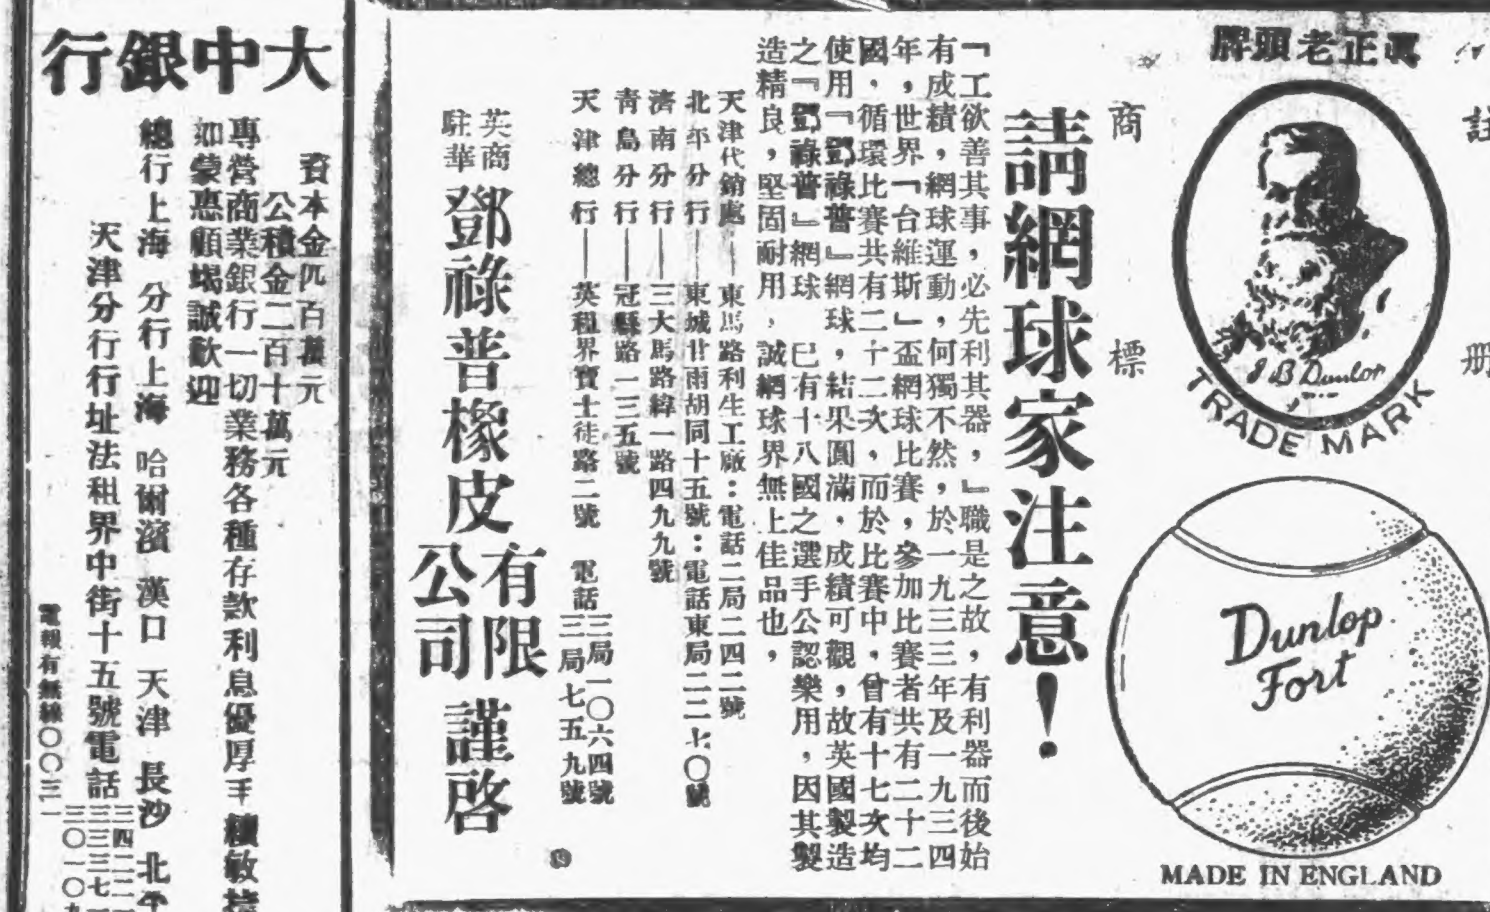 眞正老頭牌
註册
商標
J B Dunlop
TRADE MARK
Dunlop
Fort
MADE IN ENGLAND
請網球家注意！
『工欲善其事，必先利其器，』職是之故，有利器而後始
有成績，網球運動，何獨不然，於一九三三年及一九三四
年，世界「台維斯」盃網球比賽，參加比賽者共有二十二
國，循環比賽共有二十二次，而於比賽中，曾有十七次均
使用『鄧祿普』網球，結果圓滿，成績可觀，故英國製造
之『鄧祿普』網球，已有十八國之選手公認樂用，因其製
造精良，堅固耐用，誠網球界無上佳品也，
天津代銷處——東馬路利生工廠：電話二局二四二號
北平分行——東城甘雨胡同十五號：電話東局二二七〇號
濟南分行——三大馬路緯一路四九九號
青島分行——冠縣路一三五號
天津總行——英租界寶士徒路二號 電話三局一〇六四號
三局七五九號
英商
駐華
鄧祿普橡皮
有限
公司
謹啓
大中銀行
資本金四百萬元
公積金二百十萬元
專營商業銀行一切業務各種存款利息優厚手續敏捷
如蒙惠顧竭誠歡迎
總行上海 分行上海 哈爾濱 漢口 天津 長沙 北平
天津分行行址法租界中街十五號電話
電報有無線〇〇三一